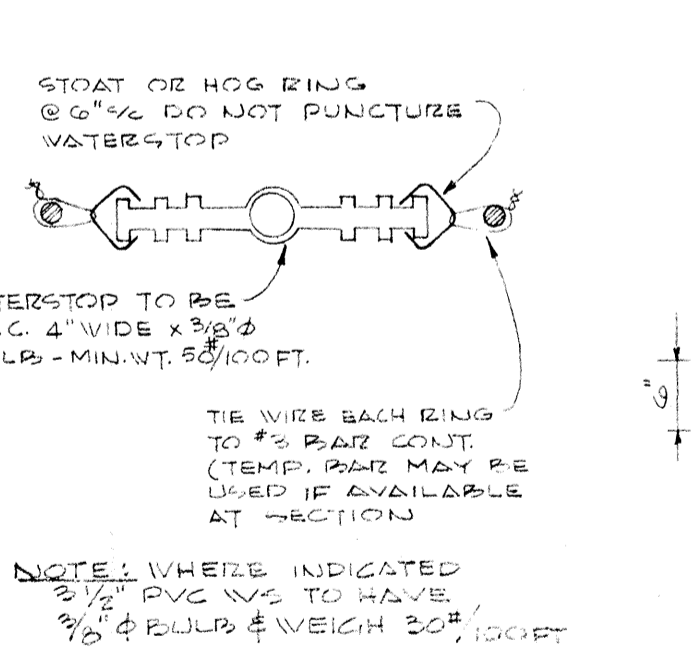 STOAT OR HOG RING
@ 6" c/c DO NOT PUNCTURE
WATERSTOP
TERSTOP TO BE
.C. 4" WIDE x 3/8" φ
LB - MIN. WT. 50#/100 FT.
6"
TIE WIRE EACH RING
TO #3 BAR CONT.
(TEMP. BAR MAY BE
USED IF AVAILABLE
AT SECTION
NOTE: WHERE INDICATED
3 1/2" PVC WS TO HAVE
3/8" φ BULB & WEIGH 30#/100 FT